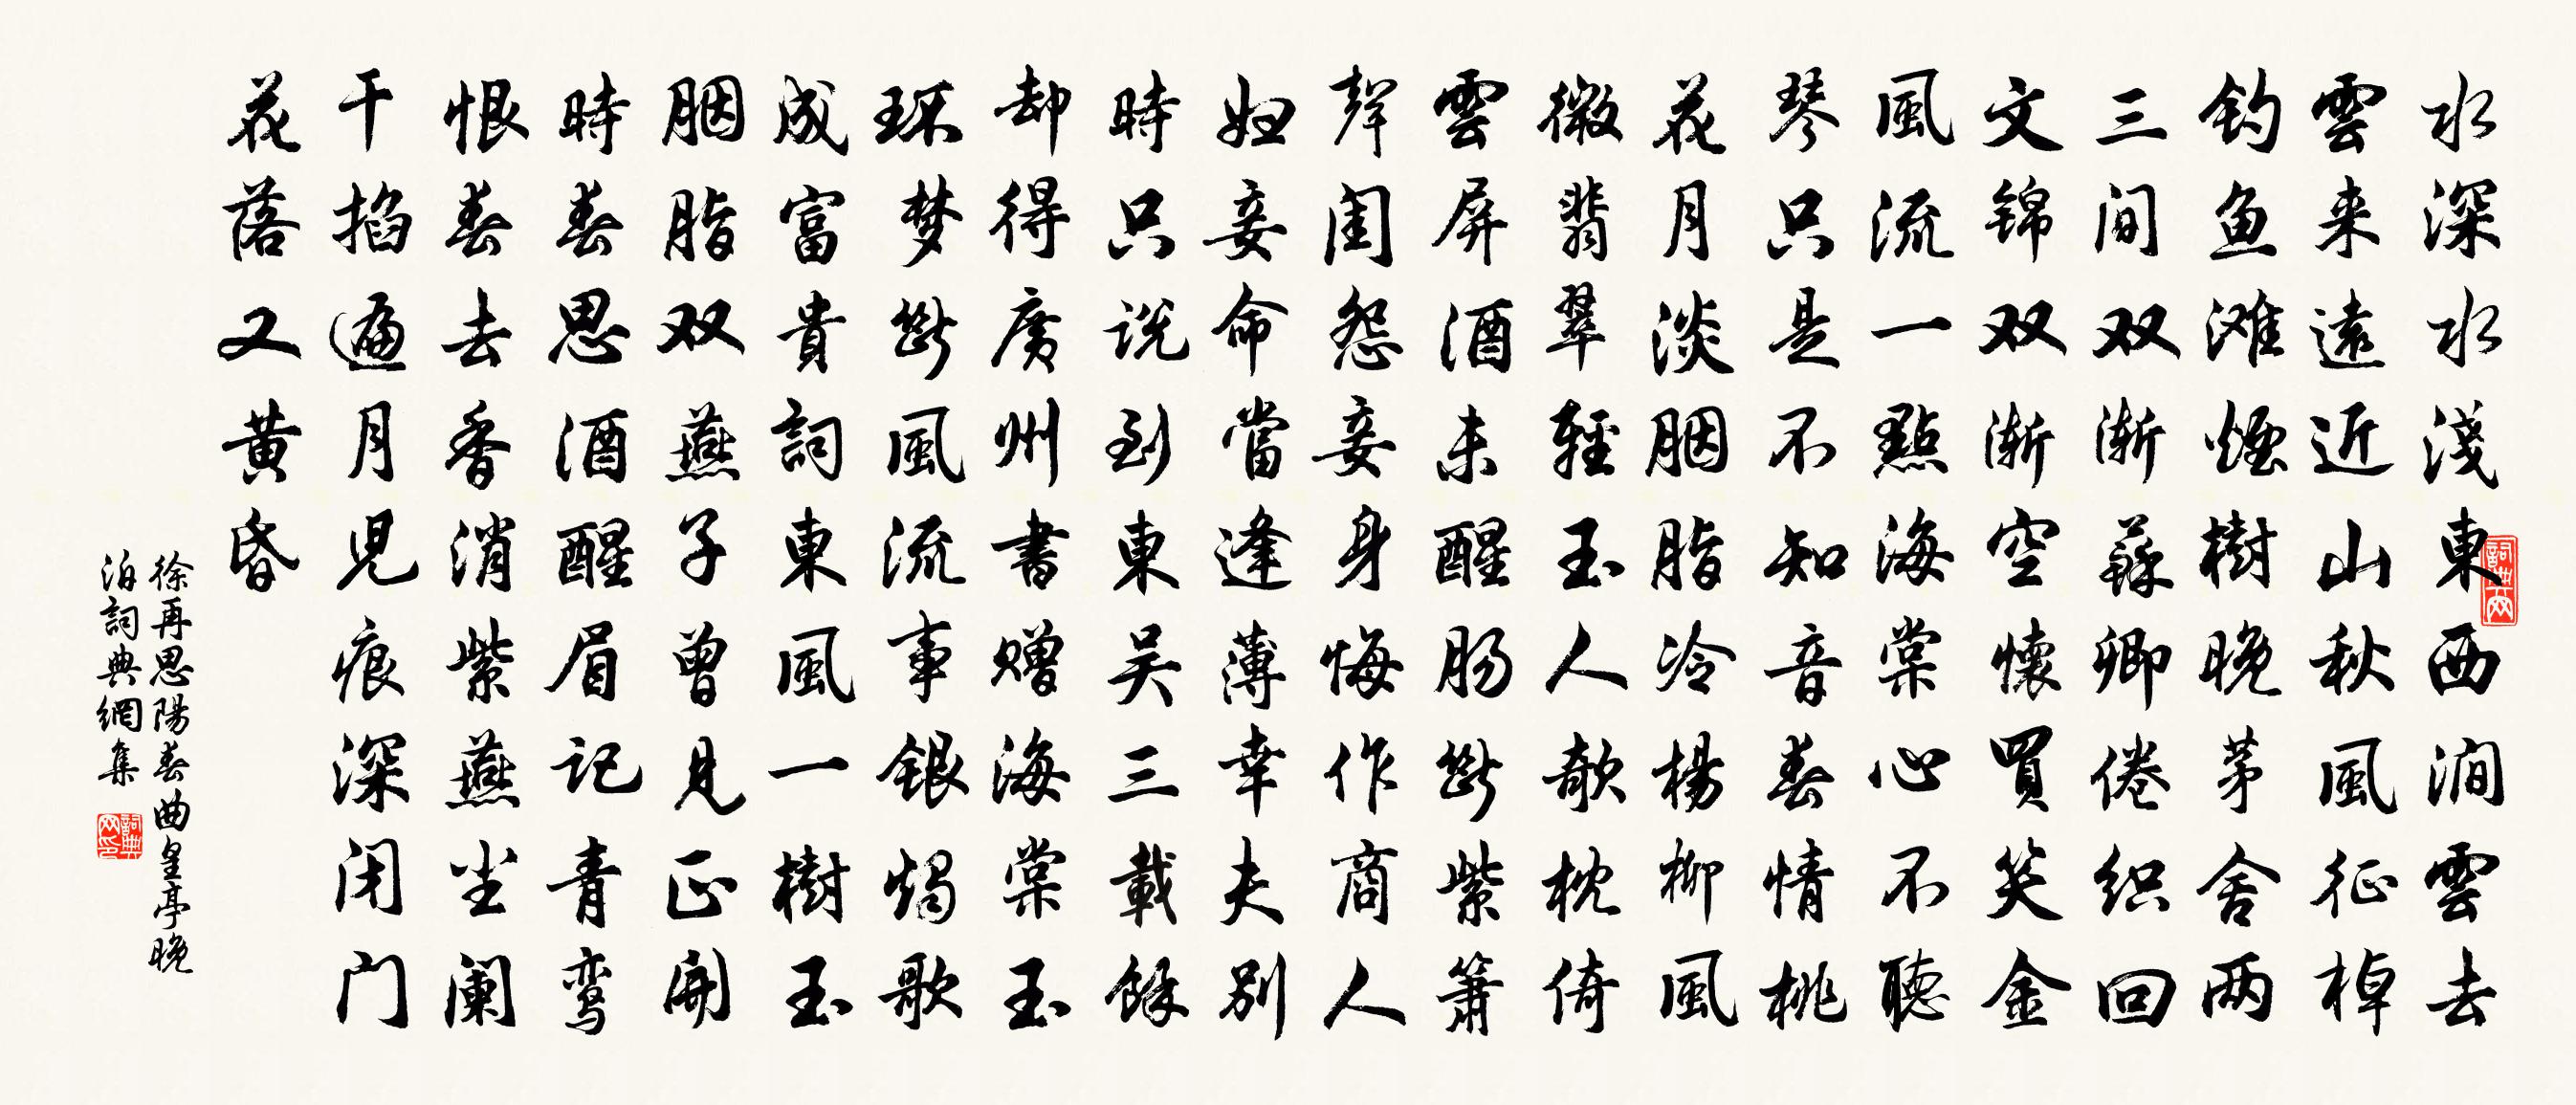 水深水淺東西澗雲去
雲来遠近山秋風征棹
钓鱼滩煙樹晚茅舍两
三间双渐蘇卿倦织回
文锦双渐空懷買笑金
風流一點海棠心不聽
琴只是不知音春情桃
花月淡胭脂冷楊柳風
微翡翠輕玉人欹枕倚
雲屏酒未醒肠斷紫箫
聲闺怨妾身悔作商人
妇妾命當逢薄幸夫别
時只说到東吴三載餘
却得廣州書赠海棠玉
环梦斷風流事银烛歌
成富貴詞東風一樹玉
胭脂双燕子曾見正開
時春思酒醒眉记青鸾
恨春去香消紫燕尘阑
干掐遍月兒痕深闭门
花落又黄昏
徐再思陽春曲皇亭晚
泊詞典網集